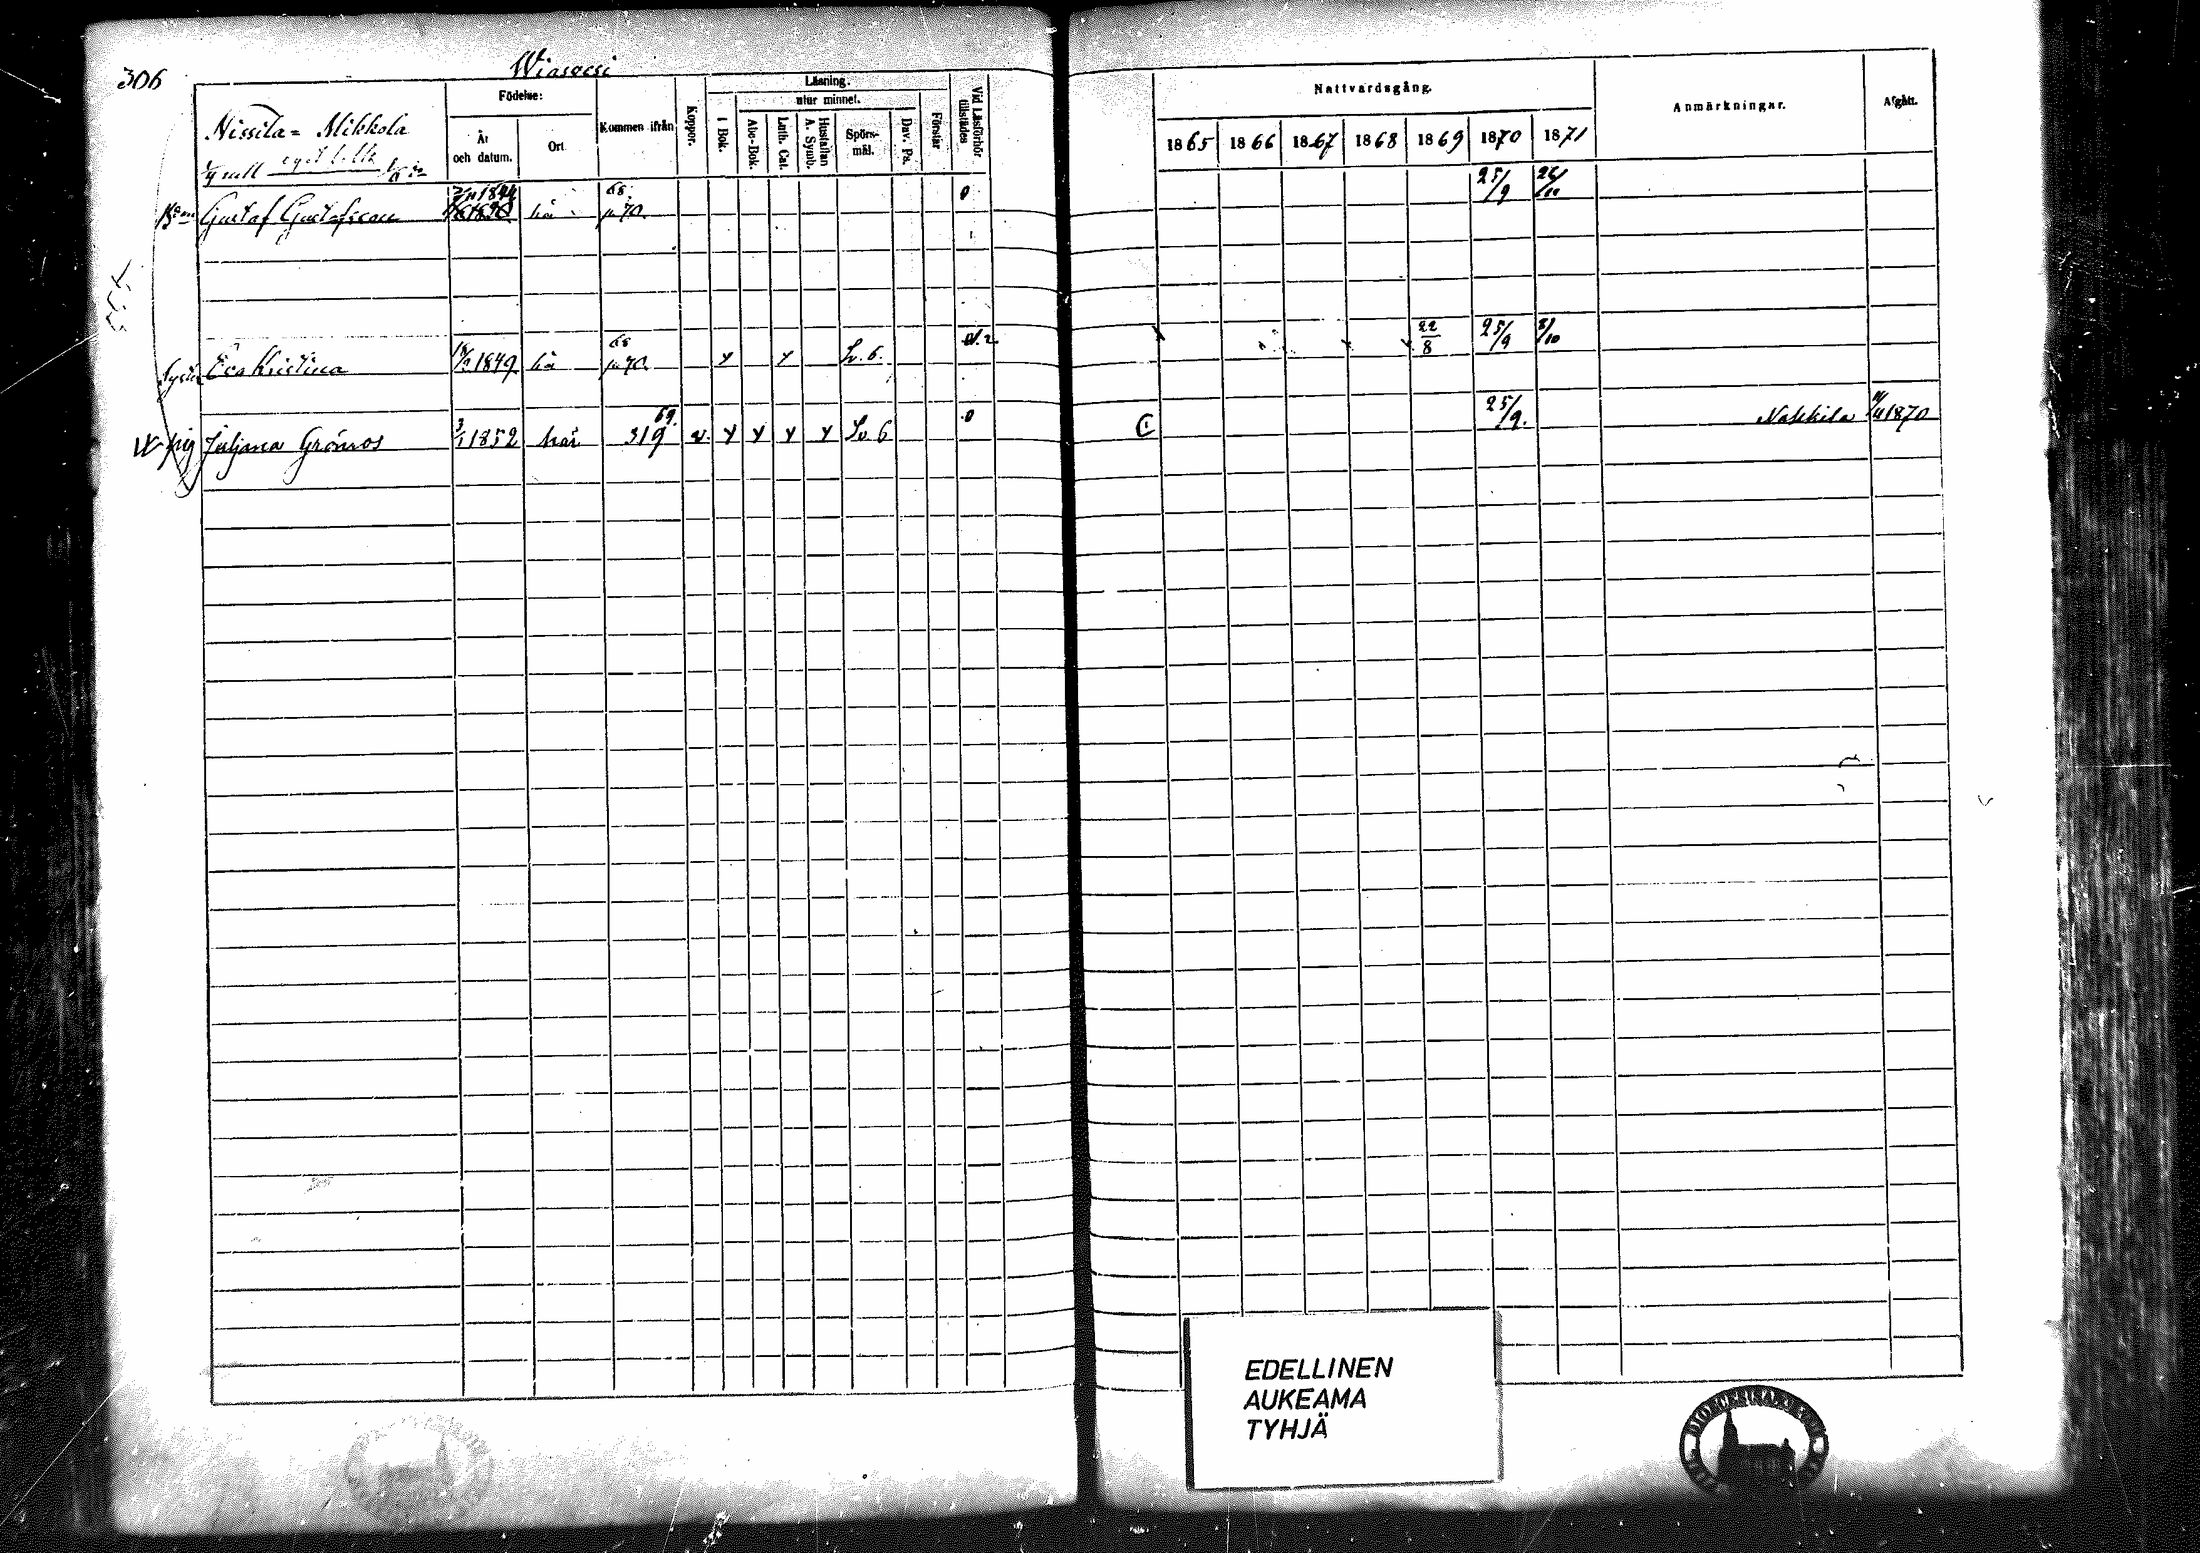 306
Wiasvesi
Födelse:
Kommen ifrån
Koppor.
Läsning.
utur minnet.
Vid Läsförhör tillstädes
År och datum.
Ort
i Bok.
Abc-Bok.
Luth. Cat.
Hustaflan A. Symb.
Spörsmål.
Dav. Ps.
Förstår
Nattvardsgång.
Anmärkningar.
Afgått.
1865 1866 1867 1868 1869 1870 1871
Nissilä = Mikkola
Gustaf Gustafsson 68 p. 70 0 25/9
Eva Kristina 1849 68 p. 70 y y Sv. 6. 22/8 25/9 8/10
pig Juljana Grönros 3/1 1852 här 69. 319 v. y y y y Sv. 6 0 C 25/9. Nakkila 1870
EDELLINEN
AUKEAMA
TYHJÄ